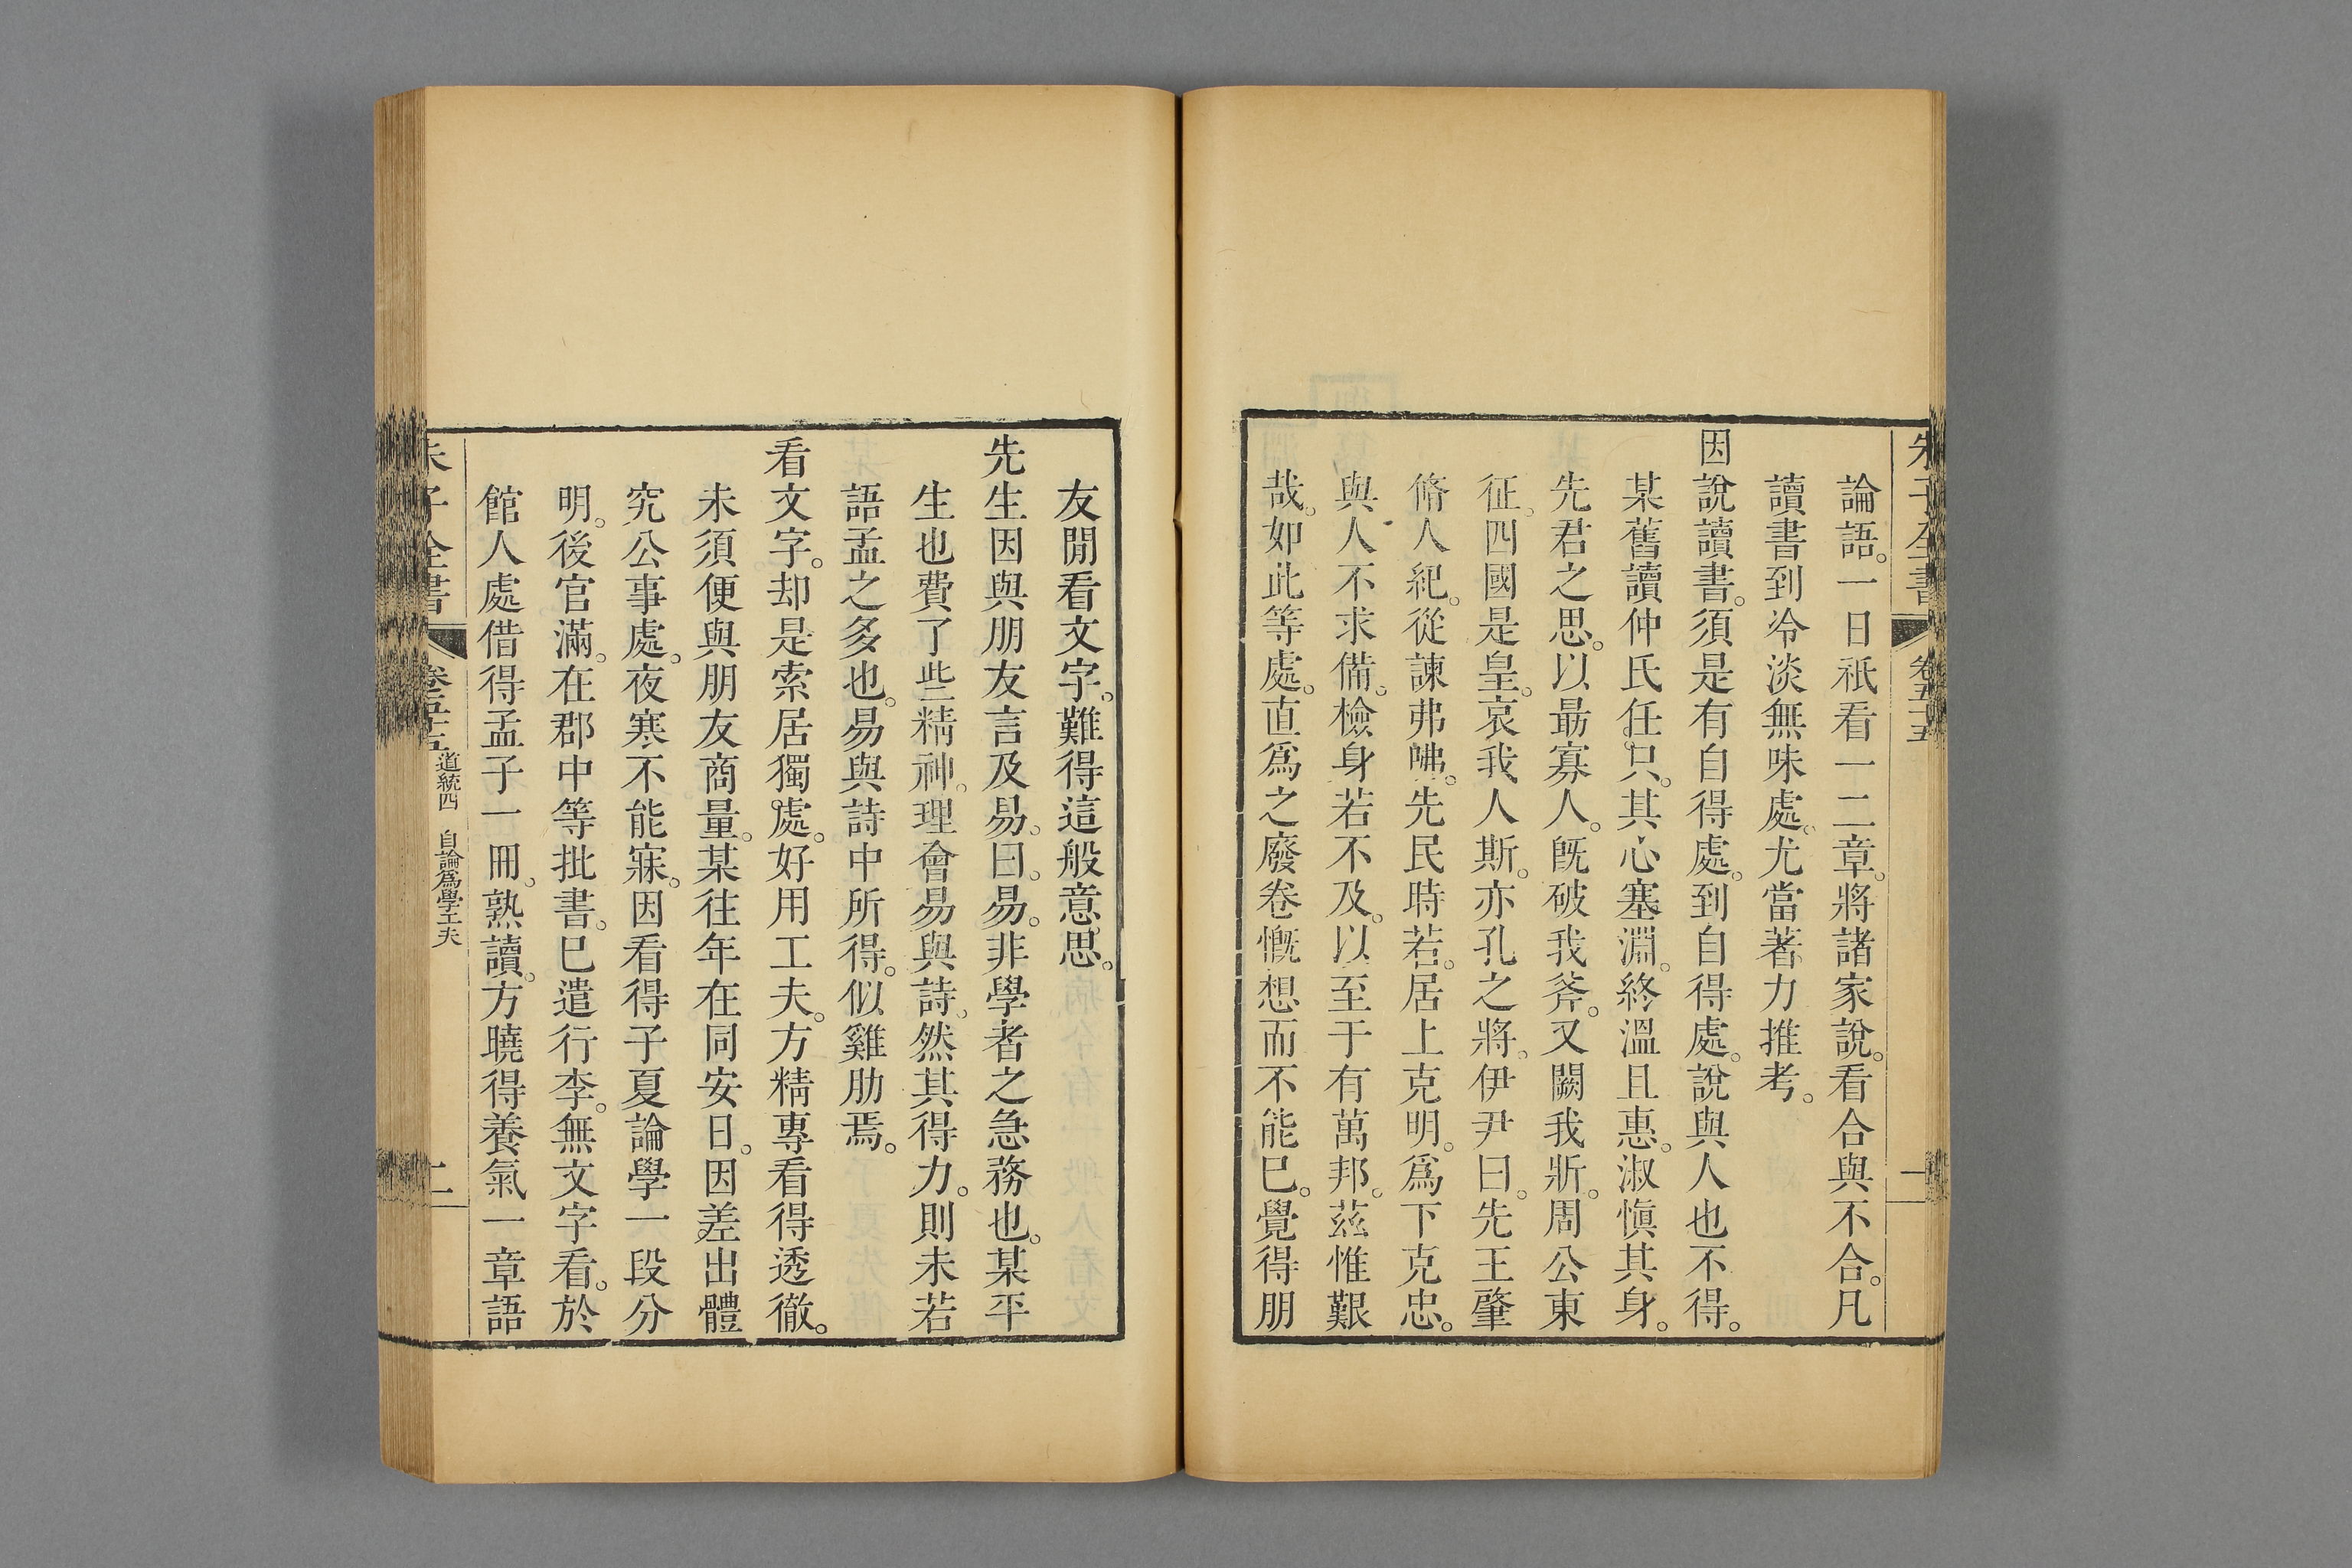 朱子全書
卷五十五
論語。一日祗看一二章。將諸家說。看合與不合。凡
讀書到冷淡無味處。尤當著力推考。
因說讀書。須是有自得處。到自得處。說與人也不得。
某舊讀仲氏任只。其心塞淵。終溫且惠。淑愼其身。
先君之思。以勗寡人。旣破我斧。又闕我斨。周公東
征。四國是皇。哀我人斯。亦孔之將。伊尹曰。先王肇
脩人紀。從諫弗咈。先民時若。居上克明。爲下克忠。
與人不求備。檢身若不及。以至于有萬邦。茲惟艱
哉。如此等處。直爲之廢卷慨想而不能已。覺得朋
友閒看文字。難得這般意思。
先生因與朋友言及易。曰。易。非學者之急務也。某平
生也費了些精神。理會易與詩。然其得力。則未若
語孟之多也。易與詩中所得。似雞肋焉。
看文字。却是索居獨處。好用工夫。方精專看得透徹。
未須便與朋友商量。某往年在同安日。因差出體
究公事處。夜寒不能寐。因看得子夏論學一段分
明。後官滿。在郡中等批書。已遣行李。無文字看。於
館人處借得孟子一冊。熟讀。方曉得養氣一章語
朱子全書
卷五十五
道統四 自論爲學工夫
二